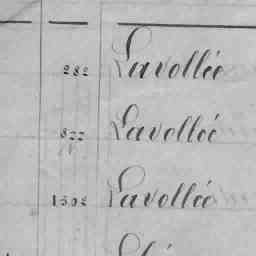 282 Lavollée
822 Lavollée
1302 Lavollée